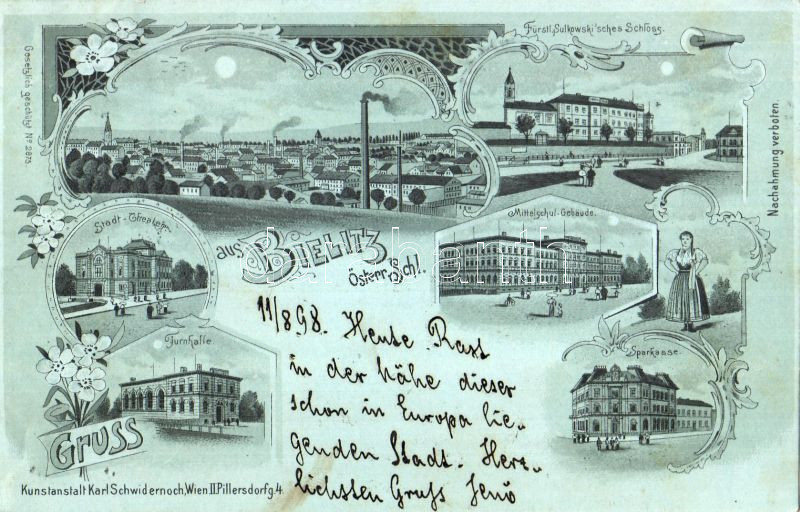 Fürstl. Sulkowski'sches Schloss.
Gesetzlich geschützt No 2873
Nachahmung verboten.
Stadt-Theater.
Mittelschul-Gebäude.
GRUSS
aus BIELITZ
Österr. Schl.
Turnhalle
Sparkasse.
11/8.98. Heute Rast
in der Nähe dieser
schon in Europa lie-
genden Stadt. Herz-
lichsten Gruss Jenö
Kunstanstalt Karl Schwidernoch, Wien II. Pillersdorfg. 4.